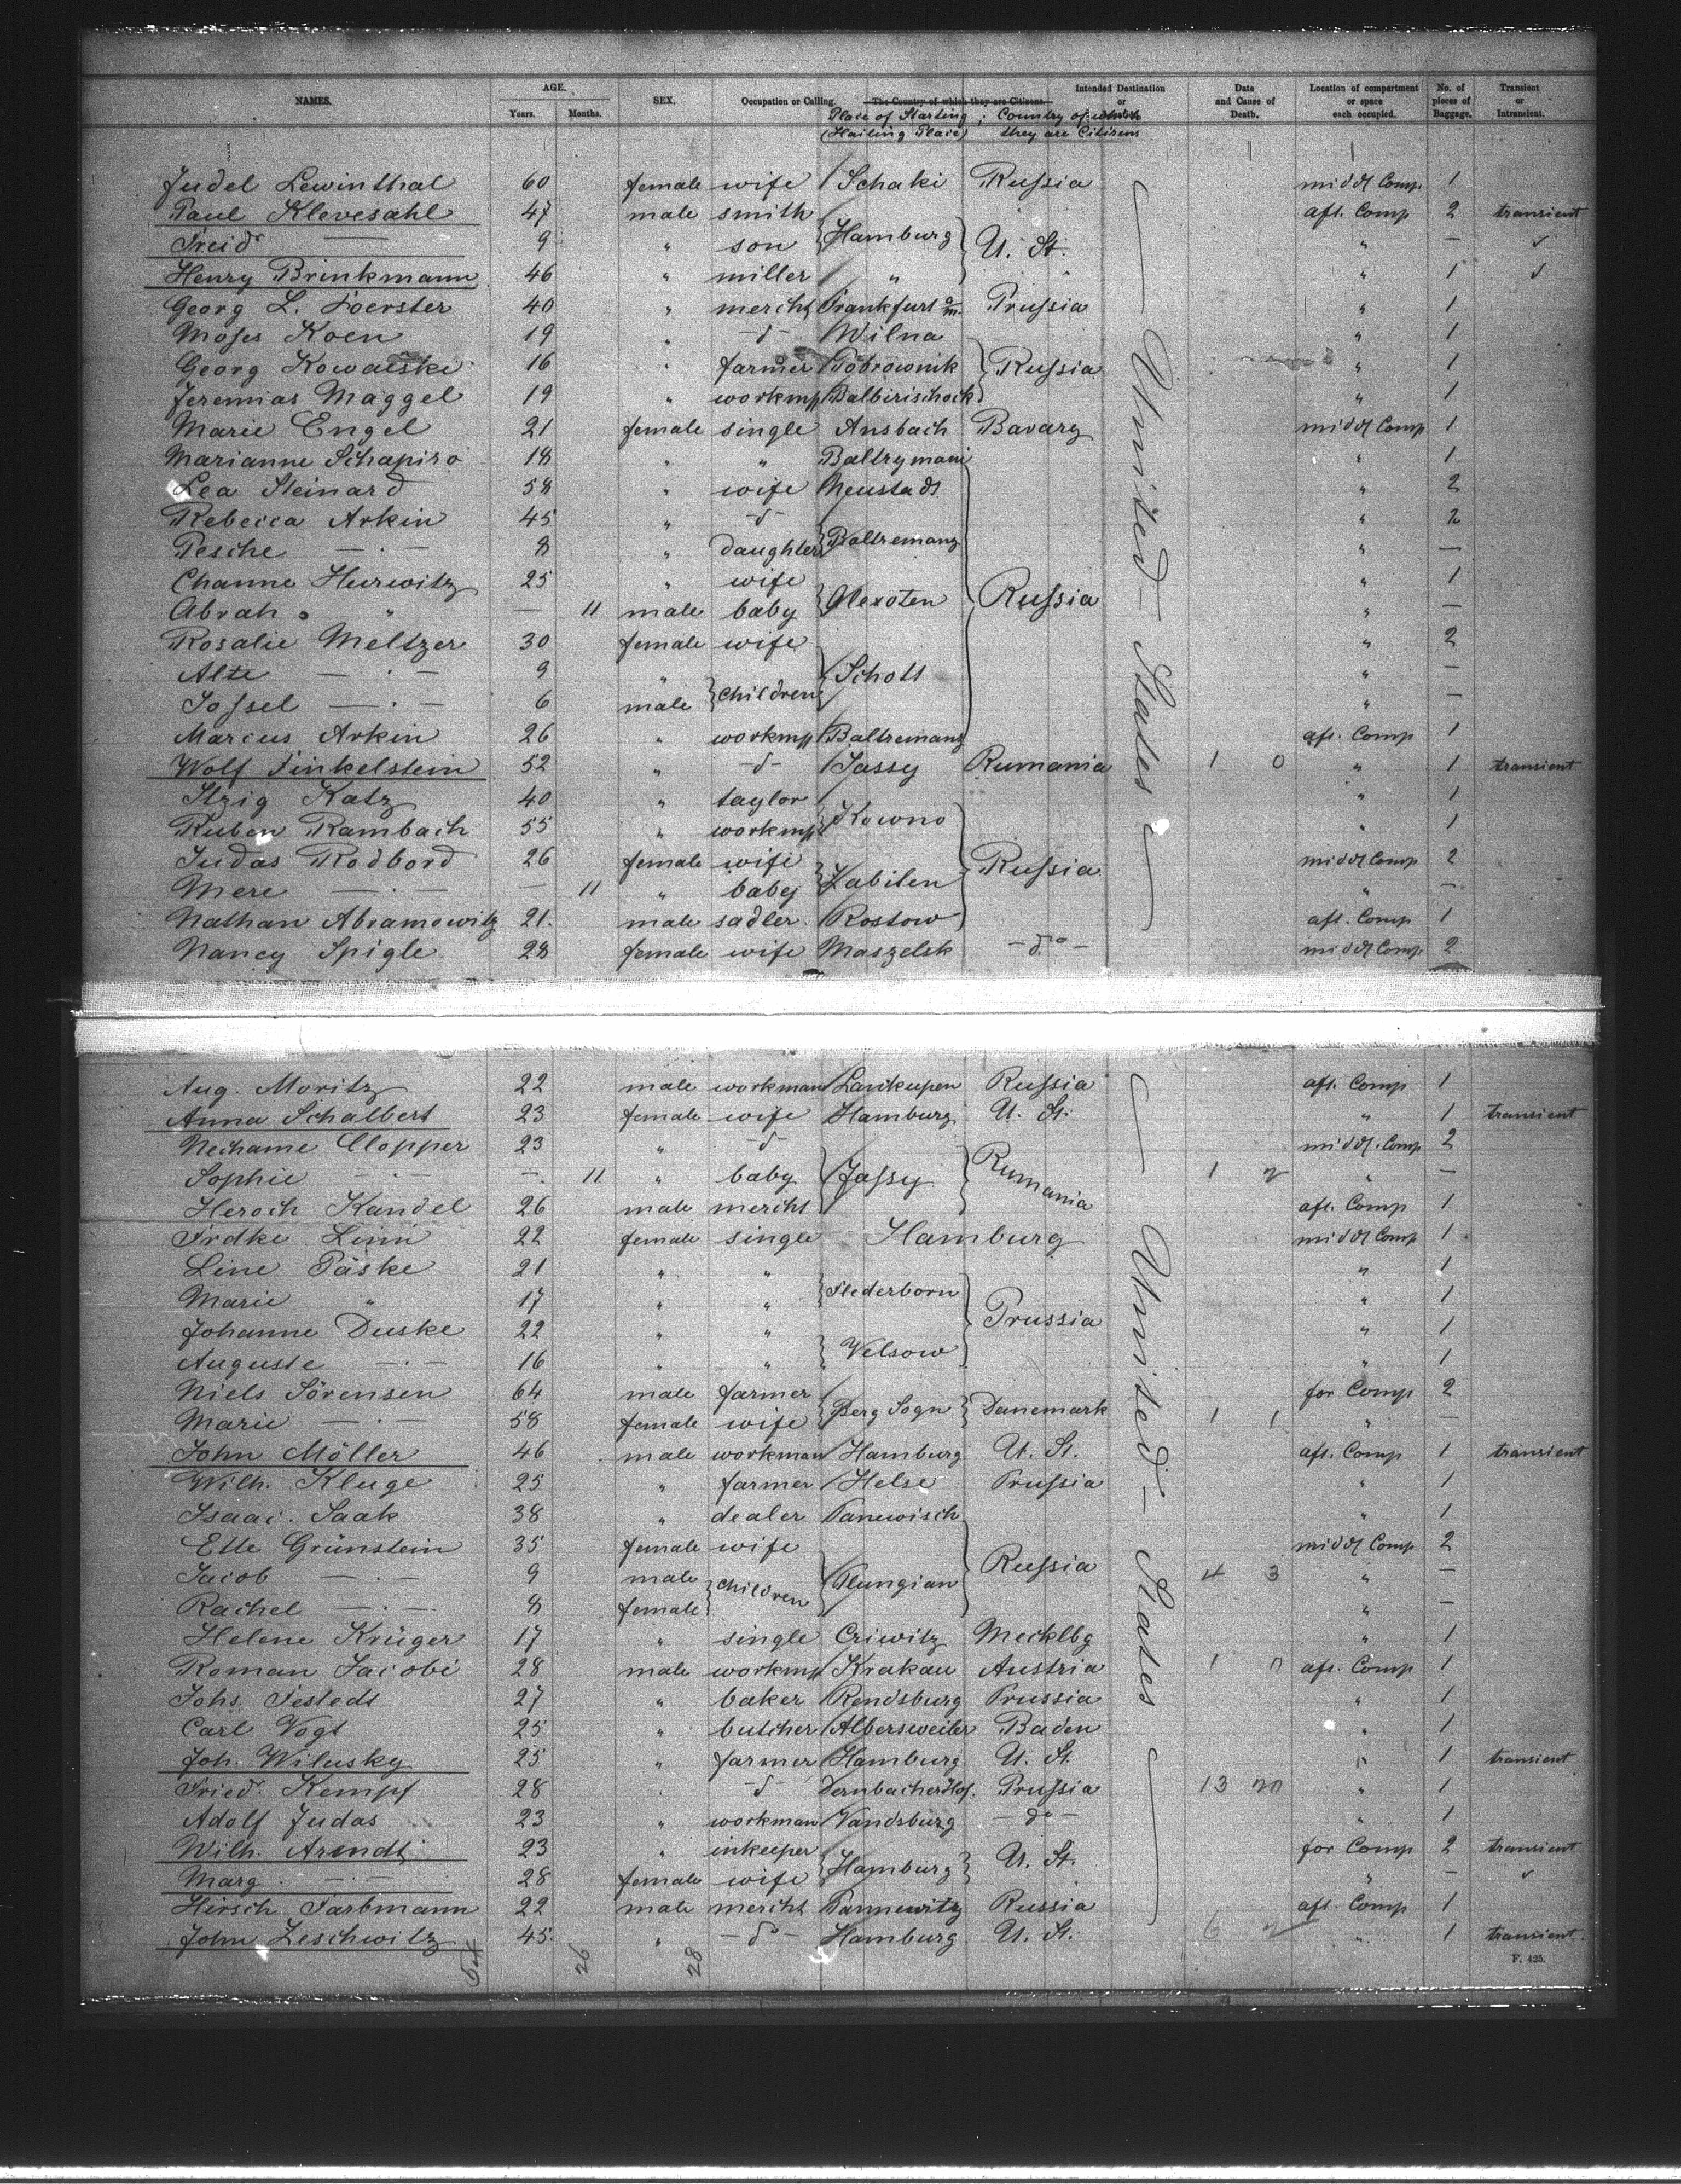 NAMES. AGE. SEX. Occupation or Calling. The Country of which they are Citizens. Intended Destination or Date and Cause of Death. Location of compartment or space each occupied. No. of pieces of Baggage. Transient or Intransient.
Years. Months. Place of Starting ; Country of which
(Hailing Place) they are Citizens
Judel Lewinthal 60 female wife Schaki Russia middl Comp 1
Paul Klevesahl 47 male smith Hamburg U. St. aft. Comp 2 transient
Freid — 9 " son " —
Henry Brinkmann 46 " miller " " " 1
Georg L. Foerster 40 " mercht Frankfurt a/m. Prussia " 1
Moses Koen 19 " -d- Wilna Russia " 1
Georg Kowalski 16 " farmer Dobrownik " 1
Jeremias Maggel 19 " workmn Balbirischock " 1
Marie Engel 21 female single Ansbach Bavary middl Comp 1
Marianne Schapiro 18 " " Baltrymani Russia " 1
Lea Steinard 58 " wife Neustadt " 2
Rebecca Arkin 45 " -d- Baltremanz " 2
Pesche — · — 8 " daughter " —
Channe Hurwitz 25 " wife Alexoten " 1
Abrah. " — 11 male baby " —
Rosalie Meltzer 30 female wife Schott " 2
Alte — · — 9 " children " —
Jossel — · — 6 male " —
Marcus Arkin 26 " workmn Baltremanz aft. Comp 1
Wolf Finkelstein 52 " -d- Jassy Rumania 1 0 " 1 transient
Itzig Katz 40 " taylor Kowno Russia " 1
Ruben Rambach 55 " workmn " 1
Judas Rodbord 26 female wife Zabiten middl Comp 2
Mere — · — — 11 " baby " —
Nathan Abramowitz 21. male sadler. Rostow aft. Comp 1
Nancy Spigle 28 female wife Maszelsk — do — middl Comp. 2
— United — States —
Aug. Moritz 22 male workman Lankupen Russia aft. Comp 1
Anna Schalbert 23 female wife Hamburg U. St. " 1 transient
Nechame Clopper 23 " -d- Jassy Rumania middl. Comp 2
Sophie — · — — 11 " baby 1 2 " —
Heroch Kandel 26 male mercht aft. Comp 1
Frdke Linn 22 female single Hamburg middl Comp 1
Line Päske 21 " " Flederborn Prussia " 1
Marie " 17 " " " 1
Johanne Duske 22 " " Velsow " 1
Auguste — · — 16 " " " 1
Niels Sörensen 64 male farmer Berg Sogn Danemark for Comp 2
Marie — · — 58 female wife 1 1 " —
John Möller 46 male workman Hamburg U. St. aft. Comp 1 transient
Wilh. Kluge 25 " farmer Helse Prussia " 1
Isaac. Saak 38 " dealer Panewisch Russia " 1
Ette Grünstein 35 female wife Plungian middl Comp 2
Jacob — · — 9 male children 4 3 " —
Rachel — · — 8 female " —
Helene Krüger 17 " single Criwitz Mecklbg " 1
Roman Jacobi 28 male workmn Krakau Austria 1 0 aft. Comp 1
Johs. Testedt 27 " baker Rendsburg Prussia " 1
Carl Vogt 25 " butcher Albersweiler Baden " 1
Joh. Wilusky 25 " farmer Hamburg U. St. " 1 transient
Fried. Kempf 28 " -d- Dernbacher Hof. Prussia 13 20 " 1
Adolf Judas 23 " workman Vandsburg — do — " 1
Wilh. Arendt 23 " inkeeper Hamburg U. St. for Comp 2 transient
Marg. — · — 28 female wife " —
Hirsch Farbmann 22 male mercht Pannewitz Russia aft. Comp 1
John Zeschwitz 45. " — do — Hamburg U. St. 6 2 " 1 transient.
— United — States —
26 28
F. 425.